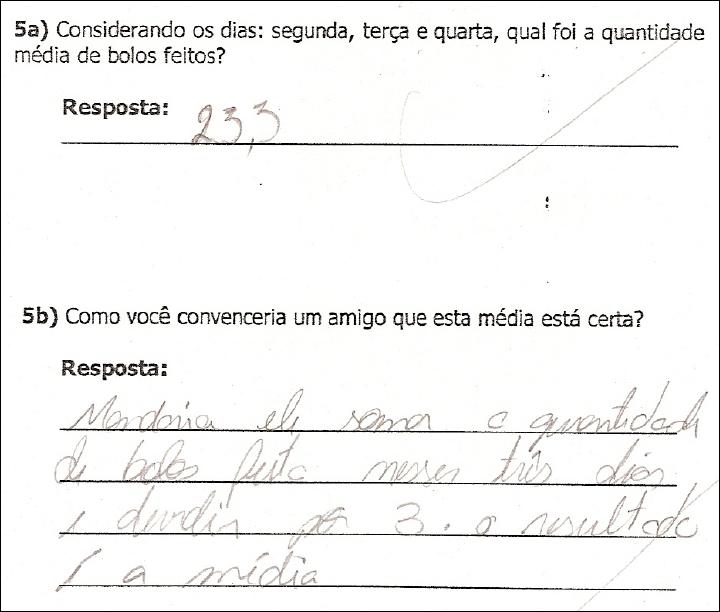 5a) Considerando os dias: segunda, terça e quarta, qual foi a quantidade
média de bolos feitos?
Resposta: 23,3
5b) Como você convenceria um amigo que esta média está certa?
Resposta:
Mandaria ele somar a quantidade
de bolos feita nesses três dias
e devidir por 3. o resultado
é a média